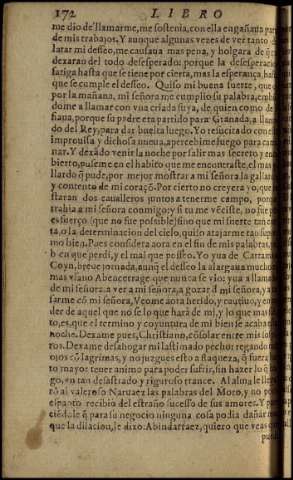 172 LIBRO
me dio de llamarme, me sostenia, con ella engañaua par
de mis trabajos. Y aunque algunas vezes de ver tanto d
latar mi desseo, me causaua mas pena, y holgara de q̃ m
dexaran del todo desesperado: porque la desesperacio
fatiga hasta que se tiene por cierta, mas la esperança, hast
que se cumple el desseo. Quiso mi buena suerte, que o
por la mañana, mi señora me cumplio su palabra, embia
dome a llamar con vna criada suya, de quien como de
fiaua, porque su padre era partido para Granada, a llama
do del Rey, para dar buelta luego. Yo resucitado con e
improuisa y dichosa nueua, apercebime luego para cami
nar. Y dexádo venir la noche por salir mas secreto y en
bierto, puseme en el habito que me encontraste, el mas
llardo q̃ pude, por mejor mostrar a mi señora la gallar
y contento de mi coraçõ. Por cierto no creyera yo, que
staran dos caualleros juntos a tenerme campo, porq
trahia a mi señora conmigo y si tu me vẽciste, no fue po
esfuerço (que no fue possible) sino que mi suerte tan co
ta, o la determinacion del cielo, quiso atajarme tan sup
mo bien. Pues considera aora en el fin de mis palabras,
b en que perdi, y el mal que posseo. Yo yua de Cartama
Coyn, breue jornada, aunq̃ el desseo la alargaua mucho
mas vfano Abencerrage que nunca se vio: yua a llamad
de mi señora. a ver a mi señora, a gozar d̃ mi señora, y a
sarme cõ mi señora, Veome aora herido, y cautiuo, y en
der de aquel que no se lo que hará de mi, y lo que mas
to, es, que el termino y coyuntura de mi bien se acaba
noche. Dexame pues, Christiano, cõsolar entre mis sospi
ros. Dexame desahogar mi lastimado pecho regando
ojos cõ lagrimas, y no juzgues esto a flaqueza, q̃ fuera
to mayor tener animo para poder sufrir, sin hazer lo q̃
go, en tan desastrado y riguroso trance. Al alma le lleg
rõ al valeroso Naruaez las palabras del Moro, y no poc
espanto recibio del estraño sucesso de sus amores. Y pa
ciẽdole q̃ para su negocio ninguna cosa podia dañar m
que la dilacion, le dixo. Abindarraez, quiero que veas q̃